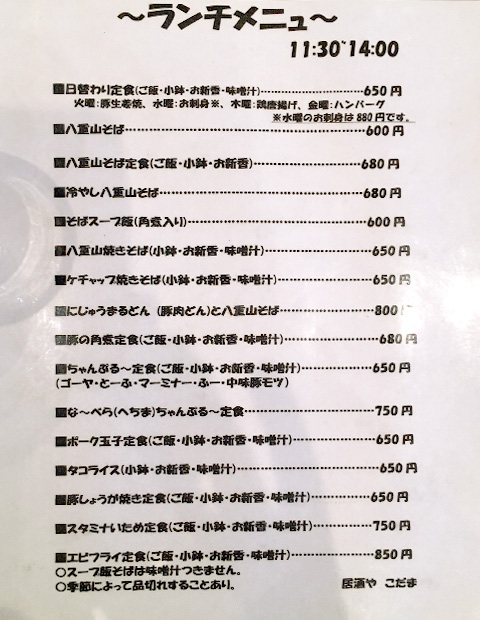 ～ランチメニュ～
11:30~14:00
■日替わり定食(ご飯・小鉢・お新香・味噌汁)…………………650円
火曜:豚生姜焼、水曜:お刺身※、木曜:鶏唐揚げ、金曜:ハンバーグ
※水曜のお刺身は880円です。
■八重山そば……………………………………600円
■八重山そば定食(ご飯・小鉢・お新香)………………680円
■冷やし八重山そば………………………………680円
■そばスープ飯(角煮入り)…………………………600円
■八重山焼きそば(小鉢・お新香・味噌汁)………………650円
■ケチャップ焼きそば(小鉢・お新香・味噌汁)……………650円
■にじゅうまるどん (豚肉どん)と八重山そば……………800円
■豚の角煮定食(ご飯・小鉢・お新香・味噌汁)……………680円
■ちゃんぷる～定食(ご飯・小鉢・お新香・味噌汁)…………650円
(ゴーヤ・とーふ・マーミナー・ふー・中味豚モツ)
■な～べら(へちま)ちゃんぷる～定食…………………750円
■ポーク玉子定食(ご飯・小鉢・お新香・味噌汁)……………650円
■タコライス(小鉢・お新香・味噌汁)…………………650円
■豚しょうが焼き定食(ご飯・小鉢・お新香・味噌汁)…………650円
■スタミナいため定食(ご飯・小鉢・お新香・味噌汁)…………750円
■エビフライ定食(ご飯・小鉢・お新香・味噌汁)……………850円
○スープ飯そばは味噌汁つきません。
○季節によって品切れすることあり。
居酒や こだま